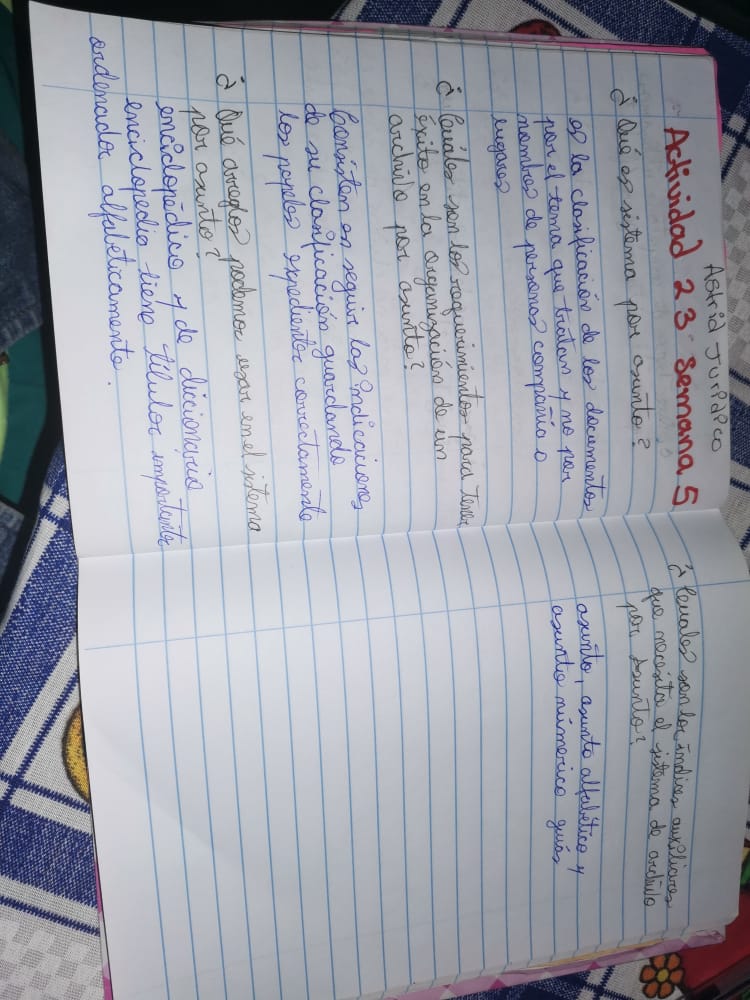 Astrid Jurídico
Actividad 23 Semana 5
¿ Qué es sistema por asunto?
es la clasificación de los documentos
por el tema que tratan y no por
nombres de personas compañía o
lugares
¿ Cuáles son los requerimientos para tener
éxito en la organización de un
archivo por asunto?
Consisten en seguir las indicaciones
de su clasificación guardando
los papeles expedientes correctamente
¿ Qué arreglos podemos usar en el sistema
por asunto?
enciclopédico y de diccionario
enciclopedia tiene títulos importantes
ordenador alfabéticamente.
¿ Cuales son los índices auxiliares
que necesita el sistema de archivo
por asunto?
asunto, asunto alfabético y
asunto númerico guías